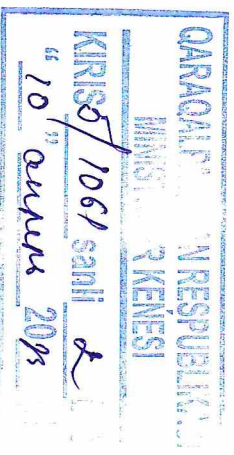 QARAQALP N RESPUBLIKA
MINIST R KEŃESI
KIRIS 5/1061 sanlı 2
"10" апрель 20